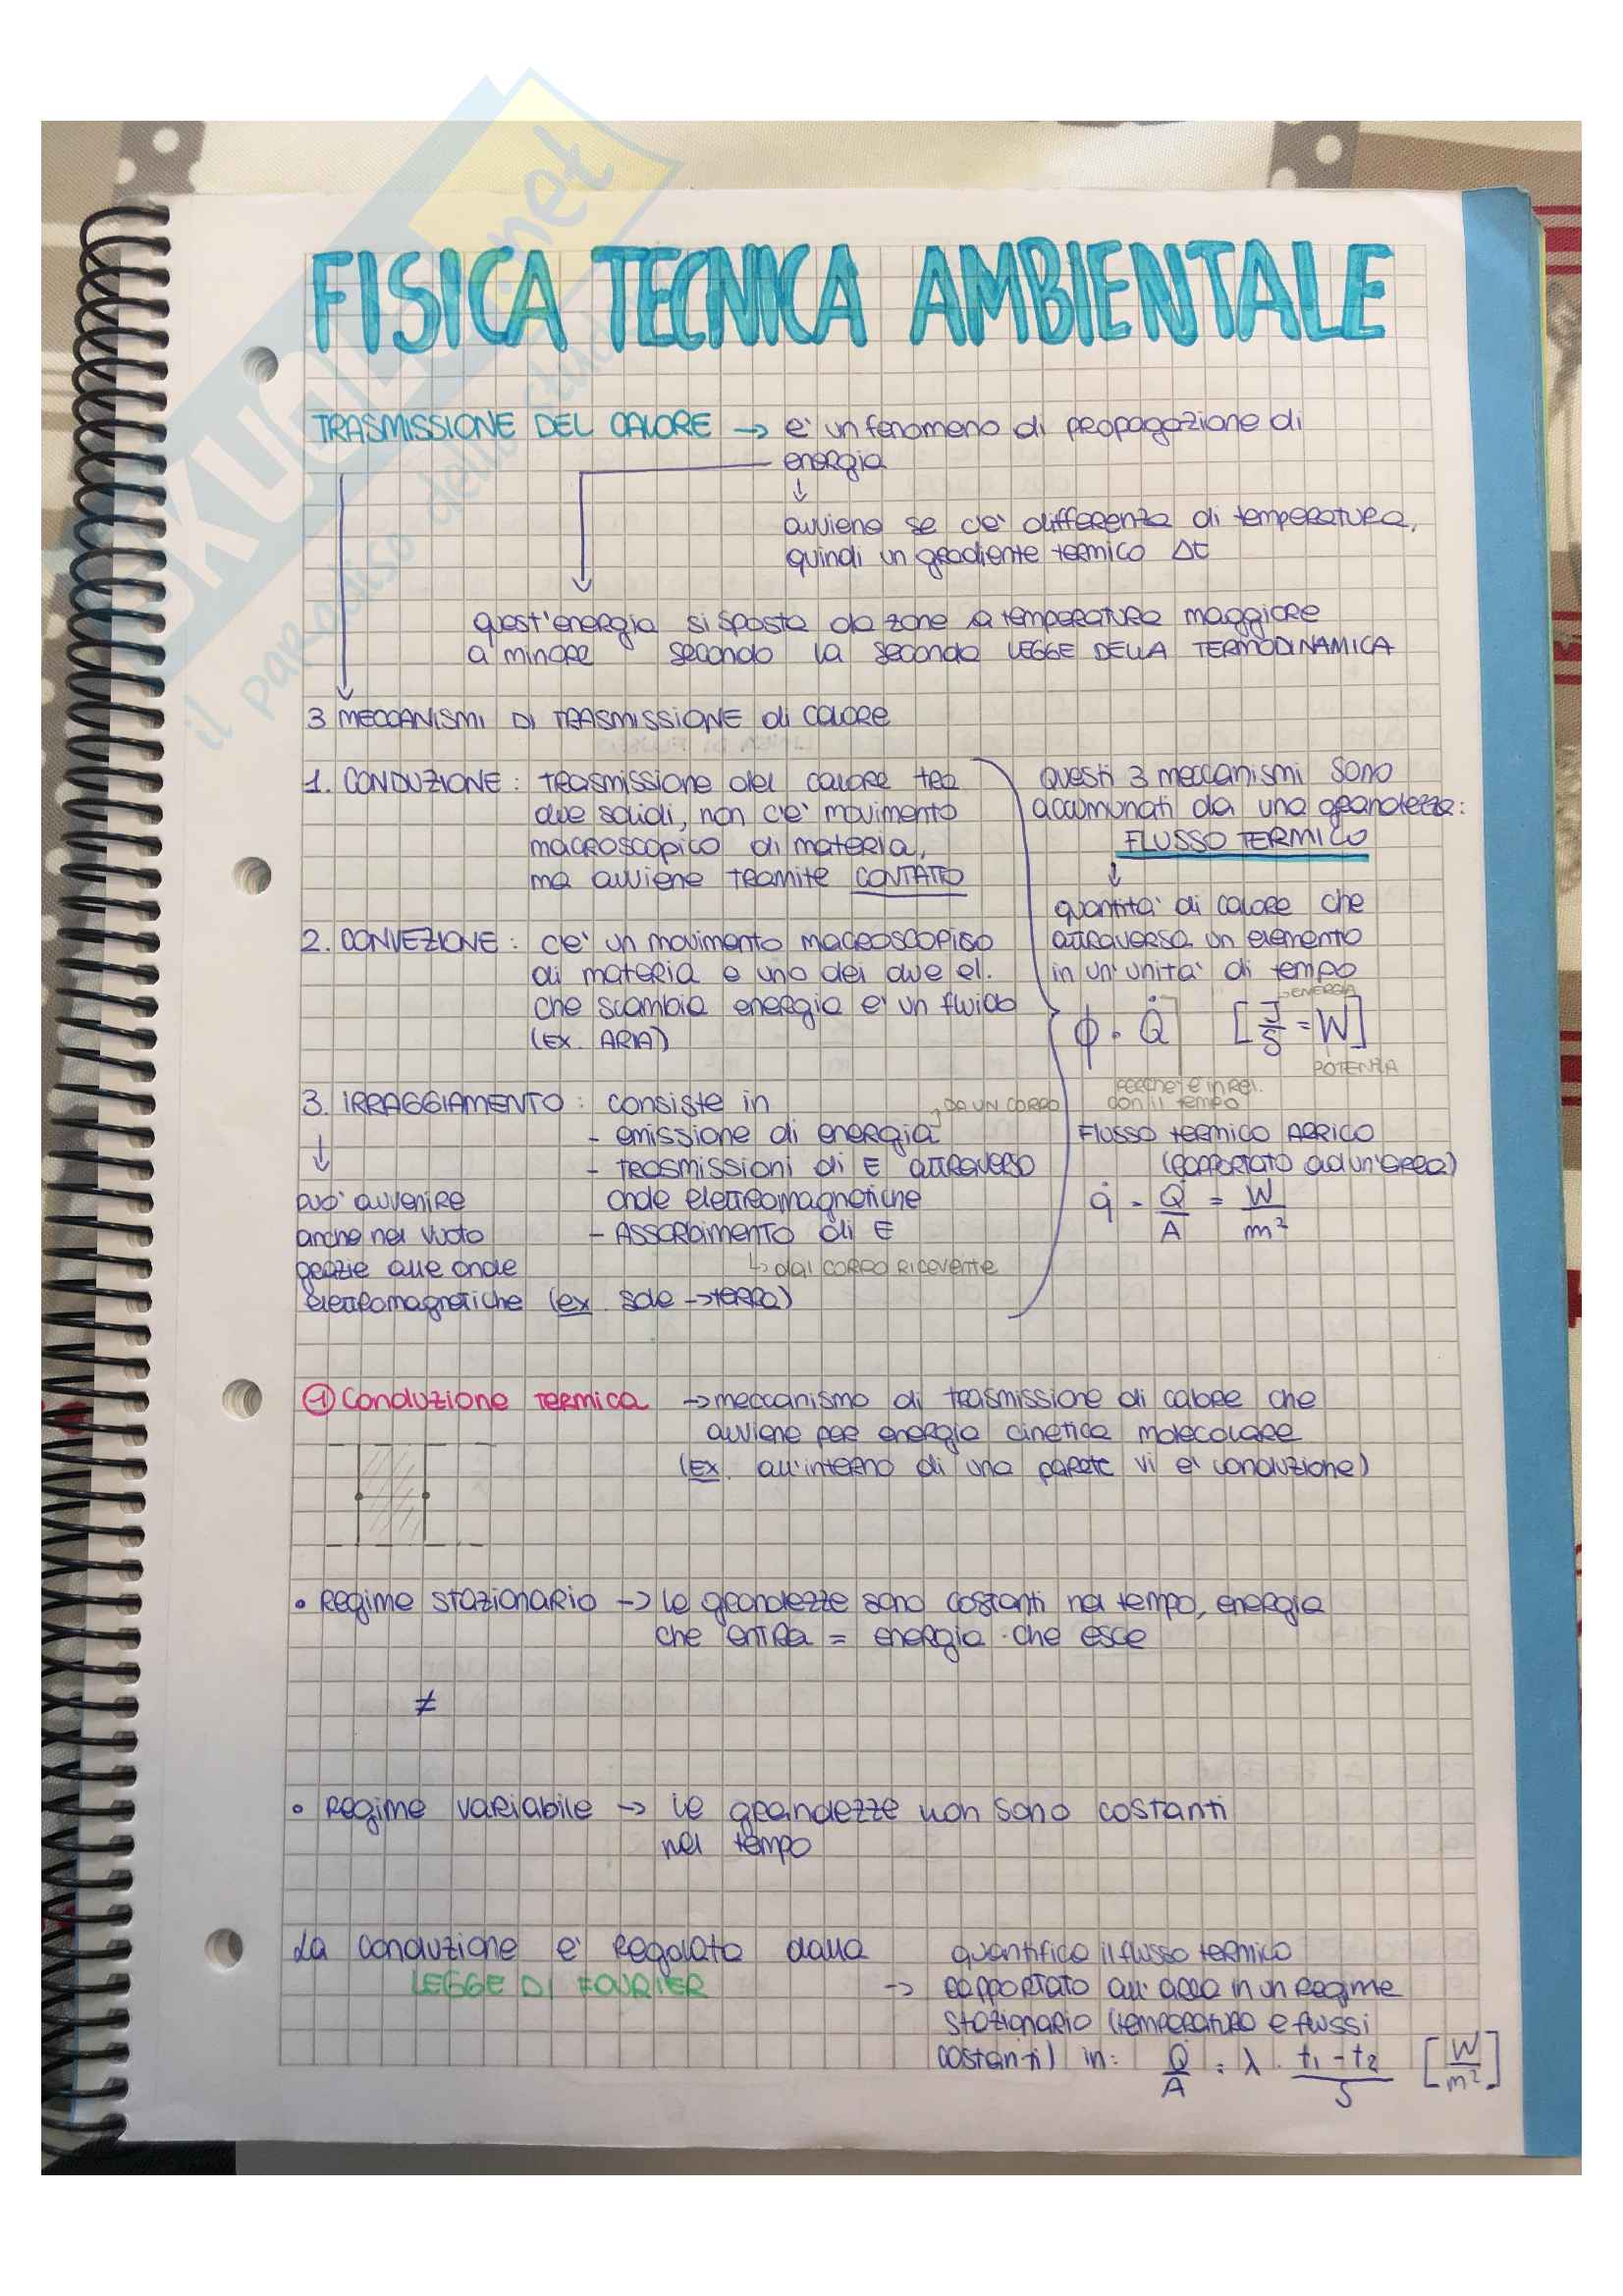 FISICA TECNICA AMBIENTALE
TRASMISSIONE DEL CALORE → e' un fenomeno di propagazione di
energia
↓
avviene se c'e' differenza di temperatura,
quindi un gradiente termico Δt
quest'energia si sposta da zone a temperatura maggiore
a minore secondo la seconda LEGGE DELLA TERMODINAMICA
3 MECCANISMI DI TRASMISSIONE di CALORE
1. CONDUZIONE: trasmissione del calore tra
due solidi, non c'e' movimento
macroscopico di materia,
ma avviene tramite CONTATTO
2. CONVEZIONE: c'e' un movimento macroscopico
di materia e uno dei due el.
che scambia energia e' un fluido
(Ex. ARIA)
3. IRRAGGIAMENTO: consiste in
- emissione di energia → DA UN CORPO
- trasmissioni di E attraverso
onde elettromagnetiche
- Assorbimento di E
↳ dal corpo ricevente
↓
puo' avvenire
anche nel vuoto
grazie alle onde
elettromagnetiche (ex. sole → terra)
questi 3 meccanismi sono
accumunati da una grandezza:
FLUSSO TERMICO
↓
quantita' di calore che
attraversa un elemento
in un'unita' di tempo
→ ENERGIA
ϕ = Q̇ [J/s = W]
POTENZA
perche' e' in rel.
con il tempo
FLUSSO termico AERICO
(rapportato ad un'area)
q̇ = Q̇/A = W/m²
① Conduzione termica → meccanismo di trasmissione di calore che
avviene per energia cinetica molecolare
(Ex. all'interno di una parete vi e' conduzione)
• Regime stazionario → le grandezze sono costanti nel tempo, energia
che entra = energia che esce
≠
• Regime variabile → le grandezze non sono costanti
nel tempo
La conduzione e' regolata dalla
LEGGE DI FOURIER
→ quantifico il flusso termico
rapportato all'area in un regime
stazionario (temperatura e flussi
costanti) in: Q̇/A = λ · t₁ - t₂/s [W/m²]
SKUOLA.net
il paradiso dello studente